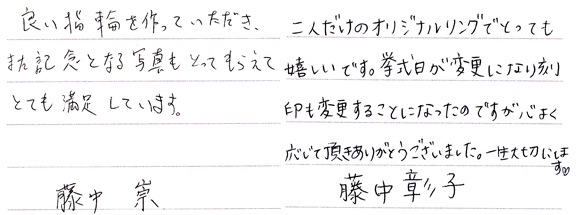 良い指輪を作っていただき、
また記念となる写真もとってもらえて
とても満足しています。
藤中 崇
二人だけのオリジナルリングでとっても
嬉しいです。挙式日が変更になり刻
印も変更することになったのですが心よく
応じて頂きありがとうございました。一生大切にします♡
藤中彰子